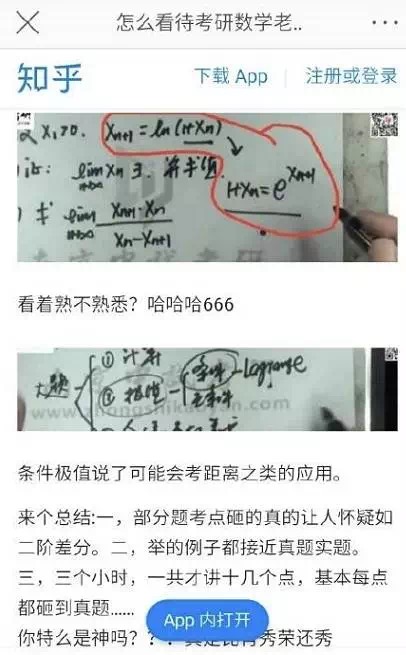 怎么看待考研数学老..
知乎
下载 App
注册或登录
X₁>0. Xn+1=ln(1+Xn)
证: lim Xn ∃. 并求值
1+Xn=e^Xn+1
求 lim Xn+1·Xn / Xn-Xn+1
看着熟不熟悉？哈哈哈666
① 计算
大题
② 极值
条件
Lagrange
无条件
www.zhongshikaoyan.com
条件极值说了可能会考距离之类的应用。
来个总结:一，部分题考点砸的真的让人怀疑如
二阶差分。二，举的例子都接近真题实题。
三，三个小时，一共才讲十几个点，基本每点
都砸到真题......
App 内打开
你特么是神吗？
秀荣还秀